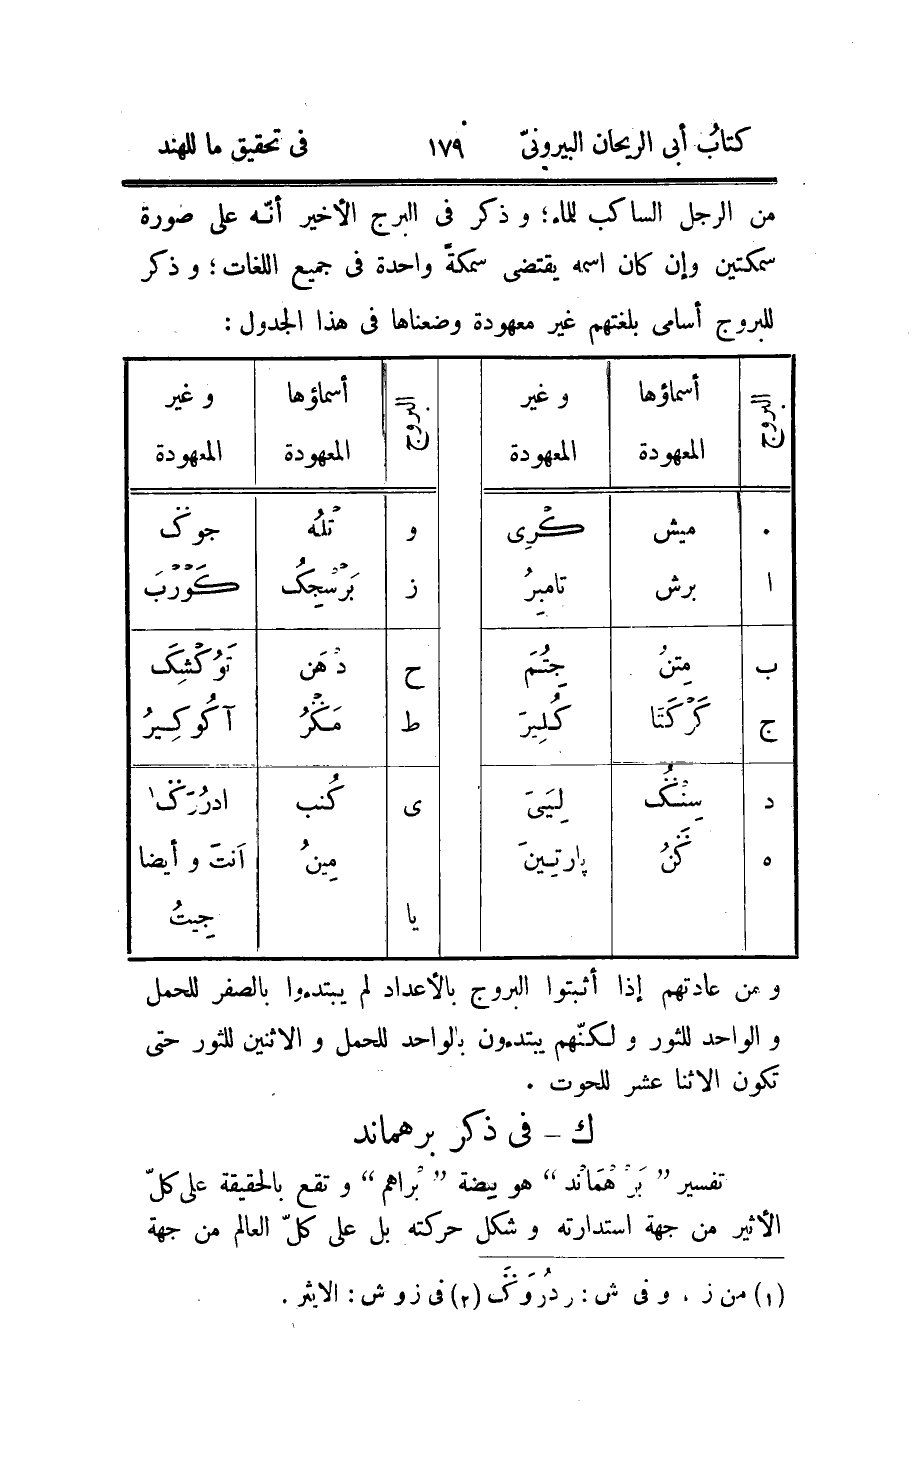 كتابُ أبى الريحان البيرونىّ ١٧٩ فى تحقيق ما للهند
من الرجل الساكب للماء؛ و ذكر فى البرج الأخير أنّه على صورة
سمكتين وإن كان اسمه يقتضى سمكةً واحدة فى جميع اللغات؛ و ذكر
للبروج أسامى بلغتهم غير معهودة وضعناها فى هذا الجدول:
البروج أسماؤها المعهودة و غير المعهودة البروج أسماؤها المعهودة و غير المعهودة
٠ ميش كْرِى و تُلَهُ جوگ
ا برش تامبِرُ ز بَرْسْچِكُ كَوْرْبَ
ب مِتنُ جِتُمَ ح دْهَن تَوُكْشِكَ
ج كَرْكَتَا كُلِيرَ ط مَكَرُ آكُوكِيرُ
د سِنْگُ لِيَىَ ى كُنب ادرُرَگ١
ه كَنُ پارتِينَ مِينُ اَنتَ و أيضا
يا جِيتُ
و من عادتهم إذا أثبتوا البروج بالأعداد لم يبتدءوا بالصفر للحمل
و الواحد للثور و لكنّهم يبتدءون بالواحد للحمل و الاثنين للثور حتى
تكون الاثنا عشر للحوت .
ك – فى ذكر برهماند
تفسير ” بَرْهْمَانْد “ هو بيضة ” بْراهم “ و تقع بالحقيقة على كلّ
الأثير من جهة استدارته و شكل حركته بل على كلّ العالم من جهة
(١) من ز ، و فى ش: ردُرَوَگ (٢) فى ز و ش: الايثر .